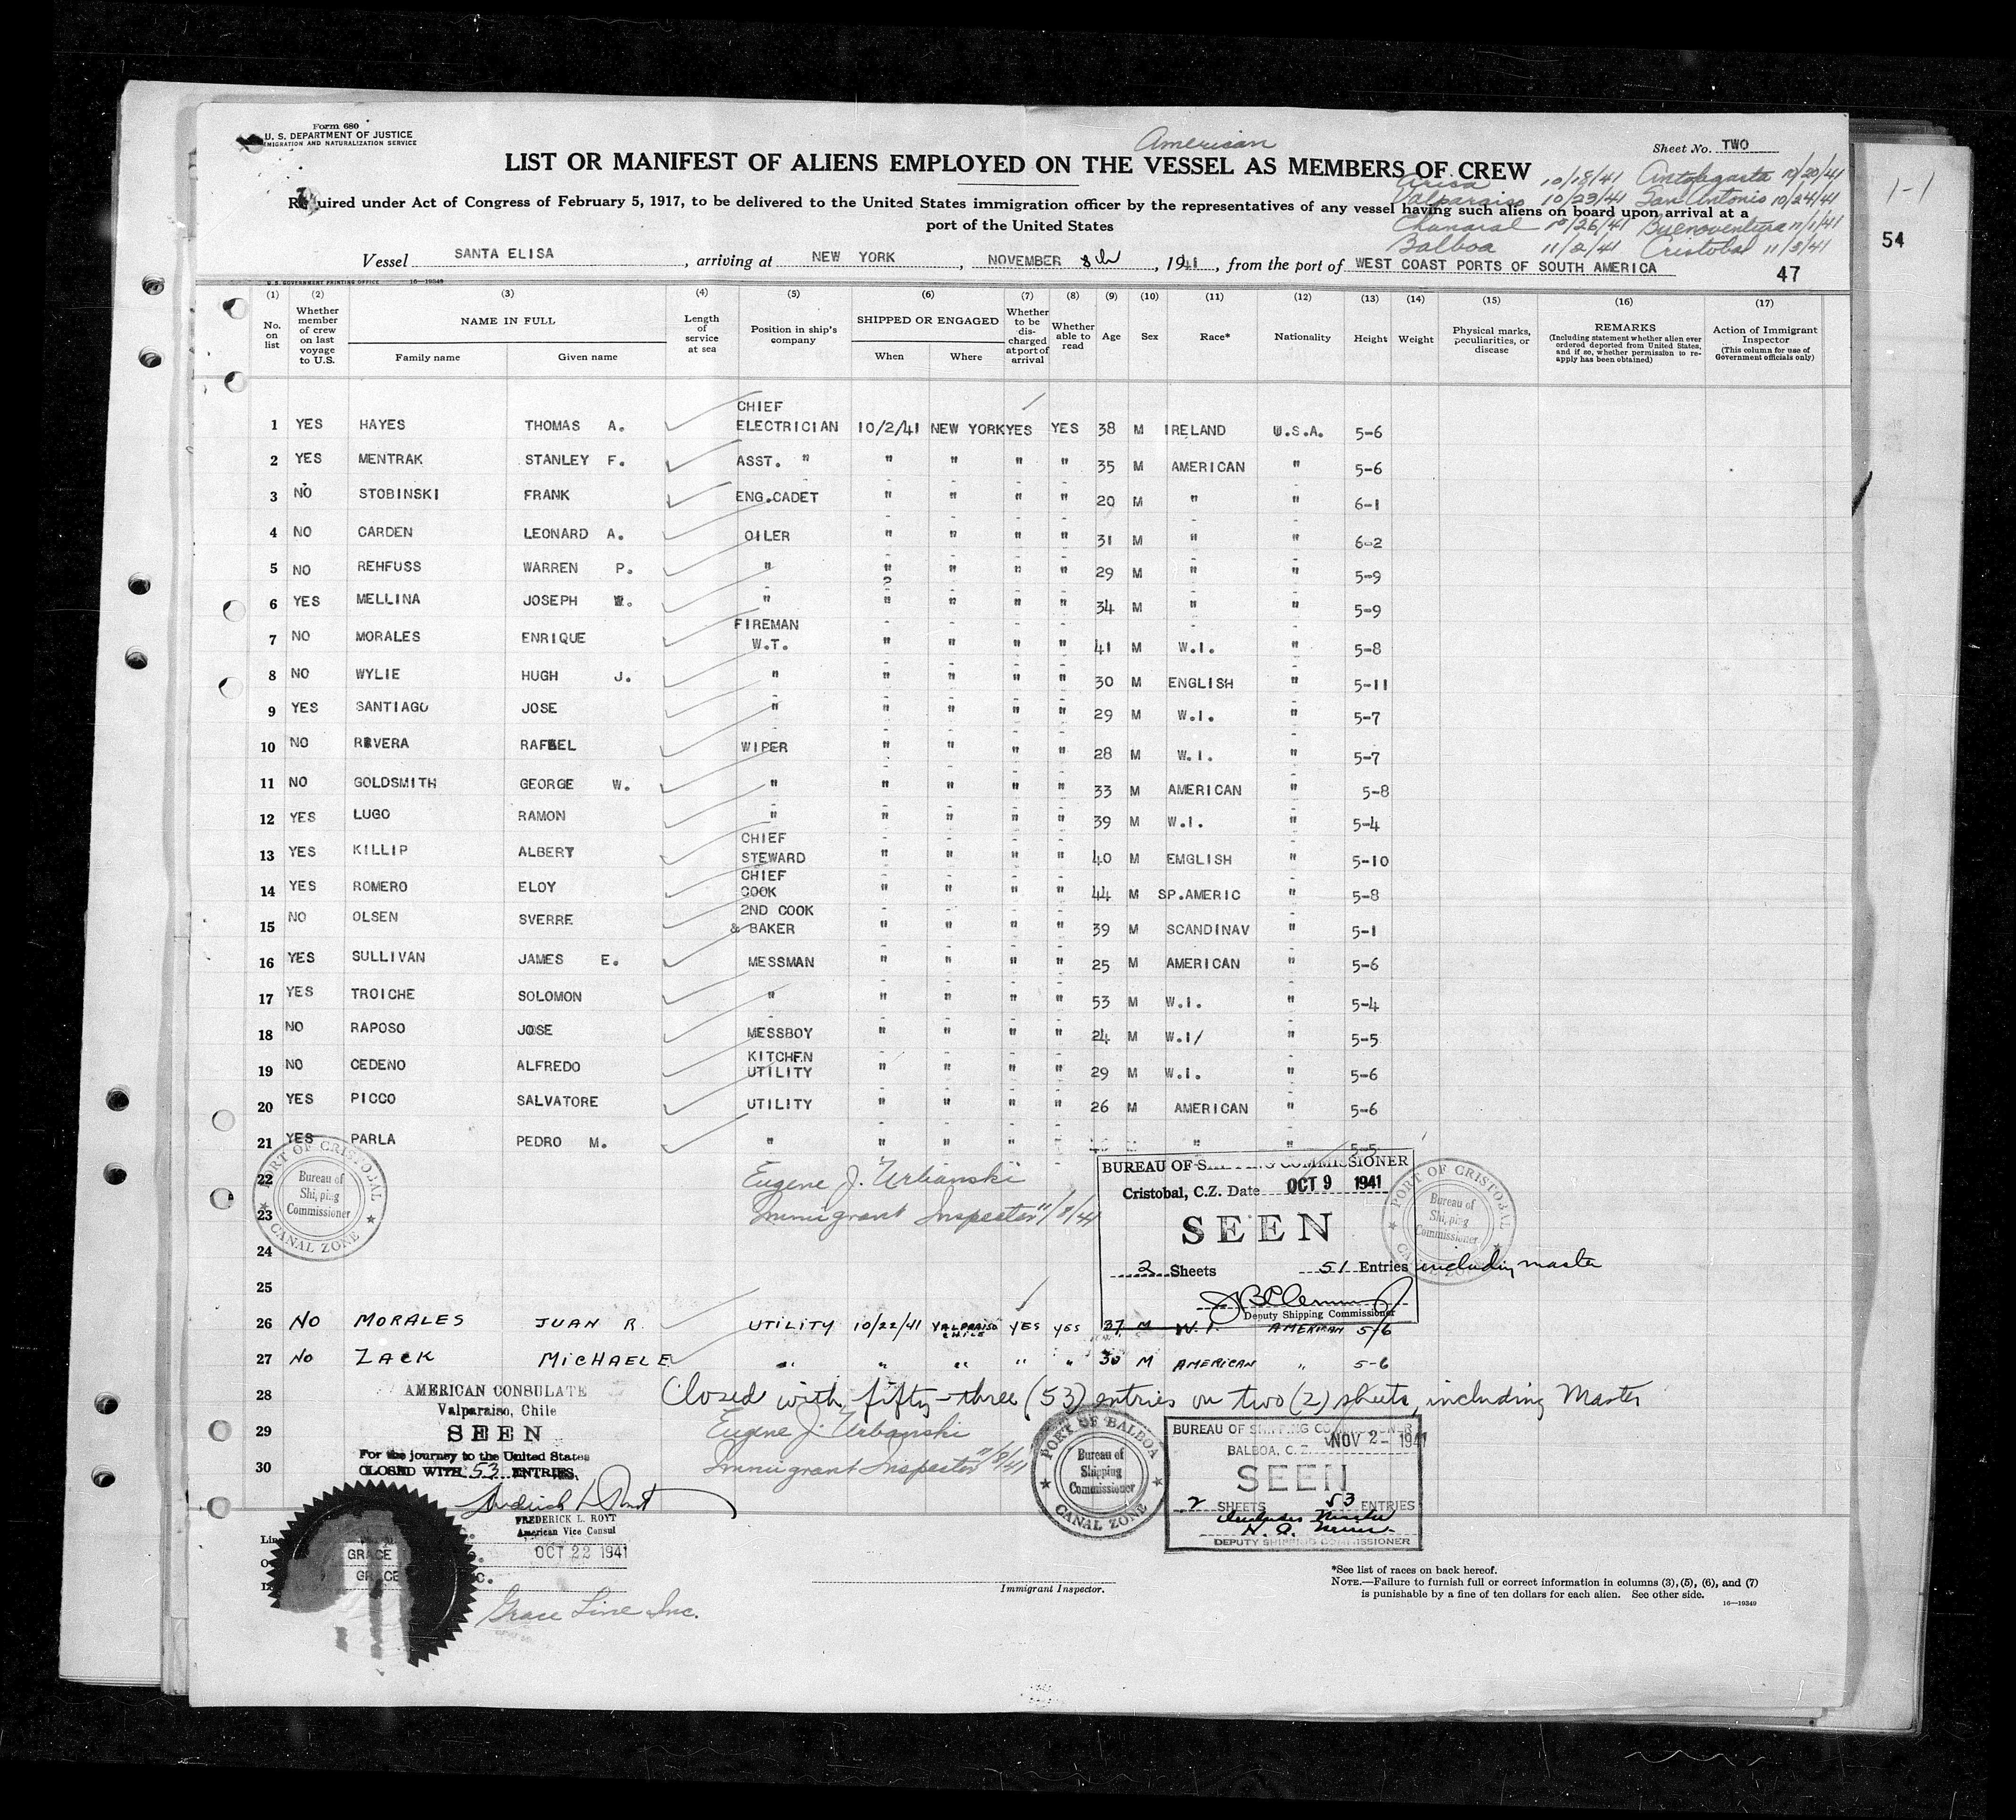 Form 680
U. S. DEPARTMENT OF JUSTICE
IMMIGRATION AND NATURALIZATION SERVICE
American
Sheet No. TWO
LIST OR MANIFEST OF ALIENS EMPLOYED ON THE VESSEL AS MEMBERS OF CREW
Arica 10/18/41 Antofagasta 10/20/41
Valparaiso 10/23/41 San Antonio 10/24/41
Chanaral 10/26/41 Buenoventura 11/1/41
Balboa 11/2/41 Cristobal 11/3/41
1-1
54
Required under Act of Congress of February 5, 1917, to be delivered to the United States immigration officer by the representatives of any vessel having such aliens on board upon arrival at a
port of the United States
Vessel SANTA ELISA, arriving at NEW YORK, NOVEMBER 8th, 1941, from the port of WEST COAST PORTS OF SOUTH AMERICA
47
U.S. GOVERNMENT PRINTING OFFICE 16—19349
(1) (2) (3) (4) (5) (6) (7) (8) (9) (10) (11) (12) (13) (14) (15) (16) (17)
No. on list
Whether member of crew on last voyage to U.S.
NAME IN FULL
Family name
Given name
Length of service at sea
Position in ship's company
SHIPPED OR ENGAGED
When
Where
Whether to be discharged at port of arrival
Whether able to read
Age
Sex
Race*
Nationality
Height
Weight
Physical marks, peculiarities, or disease
REMARKS
(Including statement whether alien ever ordered deported from United States, and if so, whether permission to reapply has been obtained)
Action of Immigrant Inspector
(This column for use of Government officials only)
1 YES HAYES THOMAS A. CHIEF ELECTRICIAN 10/2/41 NEW YORK YES YES 38 M IRELAND U.S.A. 5-6
2 YES MENTRAK STANLEY F. ASST. " " " " " 35 M AMERICAN " 5-6
3 NO STOBINSKI FRANK ENG.CADET " " " " 20 M " " 6-1
4 NO CARDEN LEONARD A. OILER " " " " 31 M " " 6-2
5 NO REHFUSS WARREN P. " " " " " 29 M " " 5-9
6 YES MELLINA JOSEPH W. " " " " " 34 M " " 5-9
7 NO MORALES ENRIQUE FIREMAN W.T. " " " " 41 M W.I. " 5-8
8 NO WYLIE HUGH J. " " " " " 30 M ENGLISH " 5-11
9 YES SANTIAGO JOSE " " " " " 29 M W.I. " 5-7
10 NO RIVERA RAFAEL WIPER " " " " 28 M W.I. " 5-7
11 NO GOLDSMITH GEORGE W. " " " " " 33 M AMERICAN " 5-8
12 YES LUGO RAMON " " " " " 39 M W.I. " 5-4
13 YES KILLIP ALBERT CHIEF STEWARD " " " " 40 M EMGLISH " 5-10
14 YES ROMERO ELOY CHIEF COOK " " " " 44 M SP.AMERIC " 5-8
15 NO OLSEN SVERRE 2ND COOK & BAKER " " " " 39 M SCANDINAV " 5-1
16 YES SULLIVAN JAMES E. MESSMAN " " " " 25 M AMERICAN " 5-6
17 YES TROICHE SOLOMON " " " " " 53 M W.I. " 5-4
18 NO RAPOSO JOSE MESSBOY " " " " 24 M W.I/ " 5-5
19 NO CEDENO ALFREDO KITCHEN UTILITY " " " " 29 M W.I. " 5-6
20 YES PICCO SALVATORE UTILITY " " " " 26 M AMERICAN " 5-6
21 YES PARLA PEDRO M. " " " " " " " 5-5
22
23
24
25
PORT OF CRISTOBAL
Bureau of Shipping Commissioner
CANAL ZONE
Eugene J. Urbanski
Immigrant Inspector 11/8/41
BUREAU OF SHIPPING COMMISSIONER
Cristobal, C.Z. Date OCT 9 1941
SEEN
2 Sheets 51 Entries including master
Deputy Shipping Commissioner
PORT OF CRISTOBAL
Bureau of Shipping Commissioner
CANAL ZONE
26 NO MORALES JUAN R. UTILITY 10/22/41 VALPRAISO CHILE YES YES 37 M W.I. AMERICAN 5/6
27 NO ZACK MICHAEL E. " " " " " 30 M AMERICAN " 5-6
28 Closed with fifty-three (53) entries on two (2) sheets, including Master
29 Eugene J. Urbanski
30 Immigrant Inspector 11/8/41
AMERICAN CONSULATE
Valparaiso, Chile
SEEN
For the journey to the United States
CLOSED WITH 53 ENTRIES
FREDERICK L. ROYT
American Vice Consul
OCT 22 1941
PORT OF BALBOA
Bureau of Shipping Commissioner
CANAL ZONE
BUREAU OF SHIPPING COMMISSIONER
BALBOA, C. Z. NOV 2- 1941
SEEN
2 SHEETS 53 ENTRIES
Includes Master
DEPUTY SHIPPING COMMISSIONER
GRACE
GRACE
Grace Line Inc.
Immigrant Inspector.
*See list of races on back hereof.
NOTE.—Failure to furnish full or correct information in columns (3), (5), (6), and (7)
is punishable by a fine of ten dollars for each alien. See other side.
16—19349